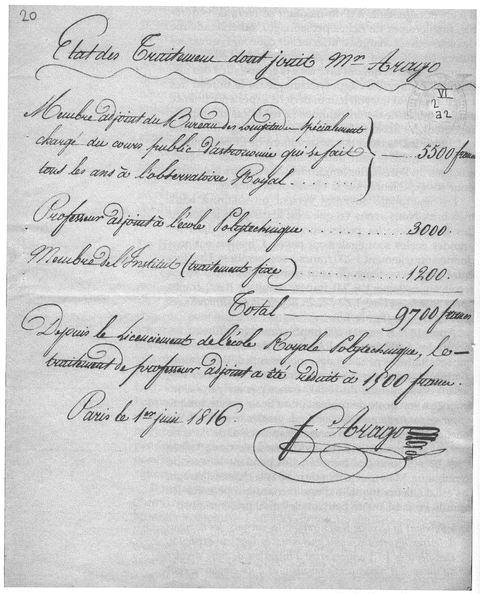 20
Etat des Traitement dont jouit Mr Arago
VI
2
32
Membre adjoint du Bureau des Longitudes spécialement
chargé du cours public d'astronomie qui se fait
tous les ans à l'observatoire Royal . . . . . . . 5500 francs
Professeur adjoint à l'école Polytechnique . . . . . . . . . 3000.
Membre de l'Institut (traitement fixe) . . . . . . . . . . 1200.
Total 9700 francs
Depuis le Licenciement de l'école Royale Polytechnique, le
traitement de professeur adjoint a été réduit à 1500 francs.
Paris le 1er juin 1816.
f. Arago